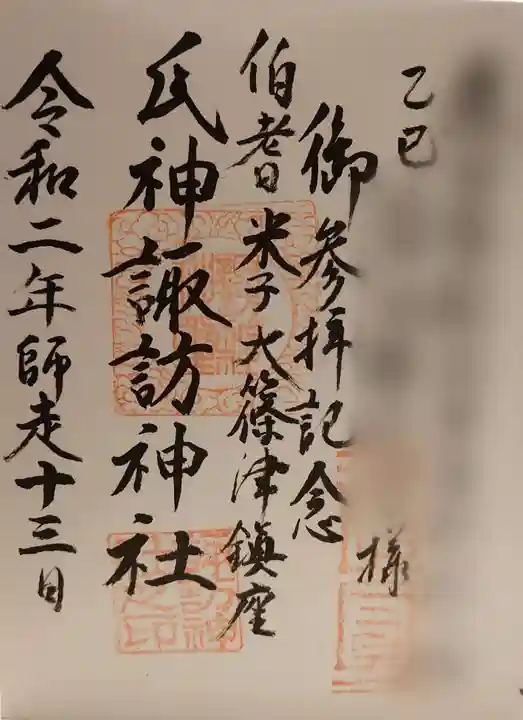 乙巳
様
御参拝記念
伯耆米子大篠津鎮座
氏神諏訪神社
令和二年師走十三日